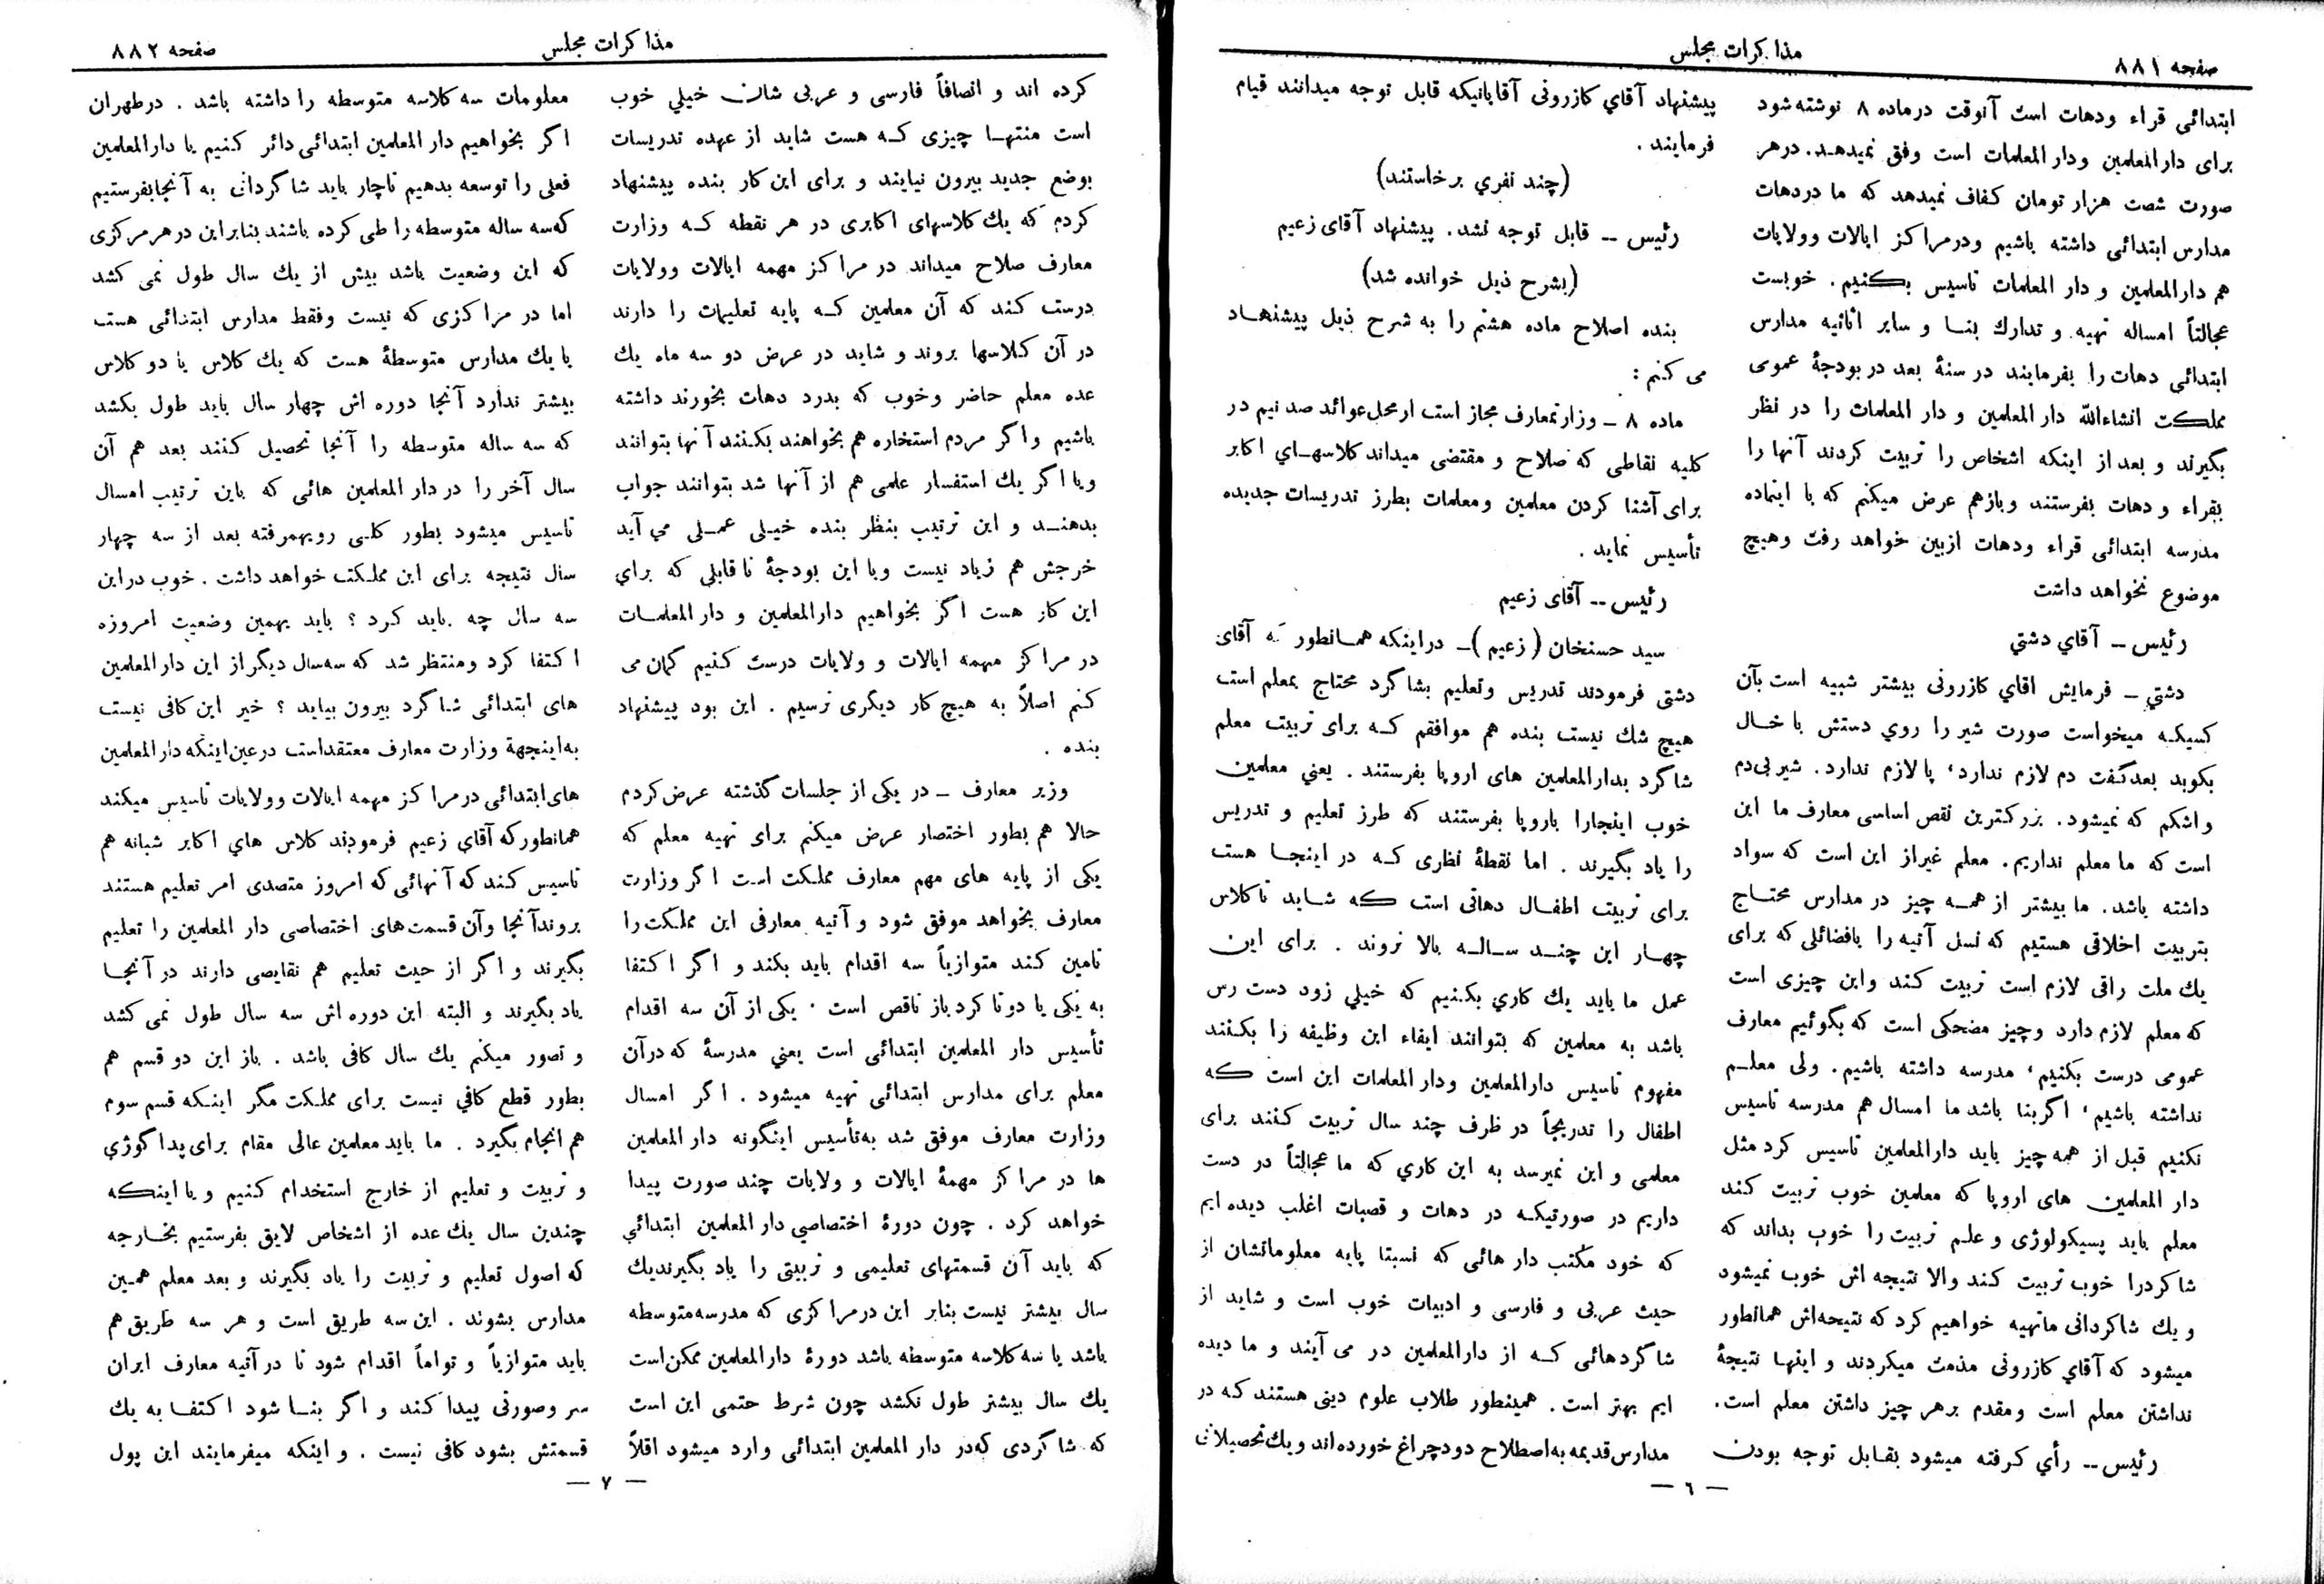 صفحه ۸۸۱
مذاکرات مجلس
ابتدائی قراء ودهات است آنوقت درماده ۸ نوشته شود
برای دارالمعلمین ودار المعلمات است وفق نمیدهد. درهر
صورت شصت هزار تومان کفاف نمیدهد که ما دردهات
مدارس ابتدائی داشته باشیم ودرمراکز ایالات وولایات
هم دارالمعلمین و دار المعلمات تاسیس بکنیم. خوبست
عجالتاً امساله تهیه و تدارك بنا و سایر اثاثیه مدارس
ابتدائی دهات را بفرمایند در سنهٔ بعد در بودجهٔ عمومی
مملکت انشاءالله دار المعلمین و دار المعلمات را در نظر
بگیرند و بعد از اینکه اشخاص را تربیت کردند آنها را
بقراء و دهات بفرستند وبازهم عرض میکنم که با اینماده
مدرسه ابتدائی قراء ودهات ازبین خواهد رفت وهیچ
موضوع نخواهد داشت
رئیس ــ آقاي دشتي
دشتي ــ فرمایش اقاي کازرونی بیشتر شبیه است بآن
کسیکه میخواست صورت شیر را روي دستش با خال
بکوبد بعد گفت دم لازم ندارد، پا لازم ندارد. شیر بی‌دم
واشکم که نمیشود. بزرگترین نقص اساسی معارف ما این
است که ما معلم نداریم. معلم غیراز این است که سواد
داشته باشد. ما بیشتر از همه چیز در مدارس محتاج
بتربیت اخلاقی هستیم که نسل آتیه را بافضائلی که برای
یك ملت راقی لازم است تربیت کند واین چیزی است
که معلم لازم دارد وچیز مضحکی است که بگوئیم معارف
عمومی درست بکنیم، مدرسه داشته باشیم. ولی معلم
نداشته باشیم، اگربنا باشد ما امسال هم مدرسه تاسیس
نکنیم قبل از همه چیز باید دارالمعلمین تاسیس کرد مثل
دار المعلمین های اروپا که معلمین خوب تربیت کند
معلم باید پسیکولوژی و علم تربیت را خوب بداند که
شاگردرا خوب تربیت کند والا نتیجه اش خوب نمیشود
و یك شاگردانی ماتهیه خواهیم کرد که نتیجه‌اش همانطور
میشود که آقاي کازرونی مذمت میکردند و اینها نتیجهٔ
نداشتن معلم است ومقدم برهر چیز داشتن معلم است.
رئیس ــ رأي گرفته میشود بقابل توجه بودن
پیشنهاد آقاي کازرونی آقایانیکه قابل توجه میدانند قیام
فرمایند.
(چند نفري برخاستند)
رئیس ــ قابل توجه نشد. پیشنهاد آقای زعیم
(بشرح ذیل خوانده شد)
بنده اصلاح ماده هشتم را به شرح ذیل پیشنهاد
می کنم:
ماده ۸ ــ وزارتمعارف مجاز است ازمحل‌عوائد صد نیم در
کلیه نقاطی که صلاح و مقتضی میداند کلاسهاي اکابر
برای آشنا کردن معلمین ومعلمات بطرز تدریسات جدیده
تأسیس نماید.
رئیس ــ آقای زعیم
سید حسنخان (زعیم) ــ دراینکه همانطور که آقای
دشتی فرمودند تدریس وتعلیم بشاگرد محتاج بمعلم است
هیچ شك نیست بنده هم موافقم که برای تربیت معلم
شاگرد بدارالمعلمین های اروپا بفرستند. یعني معلمین
خوب اینجارا باروپا بفرستند که طرز تعلیم و تدریس
را یاد بگیرند. اما نقطهٔ نظری که در اینجا هست
برای تربیت اطفال دهاتی است که شاید تاکلاس
چهار این چند ساله بالا نروند. برای این
عمل ما باید یك کاري بکنیم که خیلي زود دست رس
باشد به معلمین که بتوانند ایفاء این وظیفه را بکنند
مفهوم تاسیس دارالمعلمین ودارالمعلمات این است که
اطفال را تدریجاً در ظرف چند سال تربیت کنند برای
معلمی و این نمیرسد به این کاري که ما عجالتاً در دست
داریم در صورتیکه در دهات و قصبات اغلب دیده ایم
که خود مکتب دار هائی که نسبتا پایه معلوماتشان از
حیث عربی و فارسی و ادبیات خوب است و شاید از
شاگردهائی که از دارالمعلمین در می آیند و ما دیده
ایم بهتر است. همینطور طلاب علوم دینی هستند که در
مدارس قدیمه به‌اصطلاح دودچراغ خورده‌اند ویك‌تحصیلاتی
— ٦ —
مذاکرات مجلس
صفحه ۸۸۲
کرده اند و انصافاً فارسی و عربی شان خیلي خوب
است منتها چیزی که هست شاید از عهده تدریسات
بوضع جدید بیرون نیایند و برای این کار بنده پیشنهاد
کردم که یك کلاسهای اکابری در هر نقطه که وزارت
معارف صلاح میداند در مراکز مهمه ایالات وولایات
درست کند که آن معلمین که پایه تعلیمات را دارند
در آن کلاسها بروند و شاید در عرض دو سه ماه یك
عده معلم حاضر وخوب که بدرد دهات بخورند داشته
باشیم واگر مردم استخاره هم بخواهند بکنند آنها بتوانند
ویا اگر یك استفسار علمی هم از آنها شد بتوانند جواب
بدهند و این ترتیب بنظر بنده خیلی عملی می آید
خرجش هم زیاد نیست وبا این بودجهٔ ناقابلی که براي
این کار هست اگر بخواهیم دارالمعلمین و دار المعلمات
در مراکز مهمه ایالات و ولایات درست کنیم گمان می
کنم اصلاً به هیچ کار دیگری نرسیم. این بود پیشنهاد
بنده.
وزیر معارف ــ در یکی از جلسات گذشته عرض کردم
حالا هم بطور اختصار عرض میکنم برای تهیه معلم که
یکی از پایه های مهم معارف مملکت است اگر وزارت
معارف بخواهد موفق شود و آتیه معارفی این مملکت را
تامین کند متوازیاً سه اقدام باید بکند و اگر اکتفا
به یکی یا دوتا کرد باز ناقص است. یکی از آن سه اقدام
تأسیس دار المعلمین ابتدائی است یعني مدرسهٔ که درآن
معلم برای مدارس ابتدائی تهیه میشود. اگر امسال
وزارت معارف موفق شد به‌تأسیس اینگونه دار المعلمین
ها در مراکز مهمهٔ ایالات و ولایات چند صورت پیدا
خواهد کرد. چون دورهٔ اختصاصي دار المعلمین ابتدائي
که باید آن قسمتهای تعلیمی و تربیتی را یاد بگیرندیك
سال بیشتر نیست بنابر این درمراکزی که مدرسه‌متوسطه
باشد یا سه‌کلاسه متوسطه باشد دورهٔ دارالمعلمین ممکن‌است
یك سال بیشتر طول نکشد چون شرط حتمی این است
که شاگردی که‌در دار المعلمین ابتدائی وارد میشود اقلاً
معلومات سه کلاسه متوسطه را داشته باشد. درطهران
اگر بخواهیم دار المعلمین ابتدائی دائر کنیم یا دارالمعلمین
فعلی را توسعه بدهیم ناچار باید شاگردانی به آنجابفرستیم
که‌سه ساله متوسطه را طی کرده باشند بنابراین درهرمرکزی
که این وضعیت باشد بیش از یك سال طول نمی کشد
اما در مراکزی که نیست وفقط مدارس ابتدائی هست
یا یك مدارس متوسطهٔ هست که یك کلاس یا دو کلاس
بیشتر ندارد آنجا دوره اش چهار سال باید طول بکشد
که سه ساله متوسطه را آنجا تحصیل کنند بعد هم آن
سال آخر را در دار المعلمین هائی که باین ترتیب امسال
تاسیس میشود بطور کلی رویهمرفته بعد از سه چهار
سال نتیجه برای این مملکت خواهد داشت. خوب دراین
سه سال چه باید کرد؟ باید بهمین وضعیت امروزه
اکتفا کرد ومنتظر شد که سه‌سال دیگر از این دار المعلمین
های ابتدائی شاگرد بیرون بیاید؟ خیر این کافی نیست
به‌اینجهة وزارت معارف معتقداست درعین‌اینکه دارالمعلمین
های‌ابتدائی درمراکز مهمه ایالات وولایات تاسیس میکند
همانطورکه آقاي زعیم فرمودند کلاس هاي اکابر شبانه هم
تاسیس کند که آنهائی که امروز متصدی امر تعلیم هستند
بروندآنجا وآن قسمت‌های اختصاصی دار المعلمین را تعلیم
بگیرند و اگر از حیث تعلیم هم نقایصی دارند در آنجا
یاد بگیرند و البته این دوره اش سه سال طول نمی کشد
و تصور میکنم یك سال کافی باشد. باز این دو قسم هم
بطور قطع کافي نیست برای مملکت مگر اینکه قسم سوم
هم انجام بگیرد. ما باید معلمین عالی مقام برای پداگوژي
و تربیت و تعلیم از خارج استخدام کنیم و یا اینکه
چندین سال یك عده از اشخاص لایق بفرستیم بخارجه
که اصول تعلیم و تربیت را یاد بگیرند و بعد معلم همین
مدارس بشوند. این سه طریق است و هر سه طریق هم
باید متوازیاً و تواماً اقدام شود تا در آتیه معارف ایران
سر وصورتی پیدا کند و اگر بنا شود اکتفا به یك
قسمتش بشود کافی نیست. و اینکه میفرمایند این پول
— ۷ —